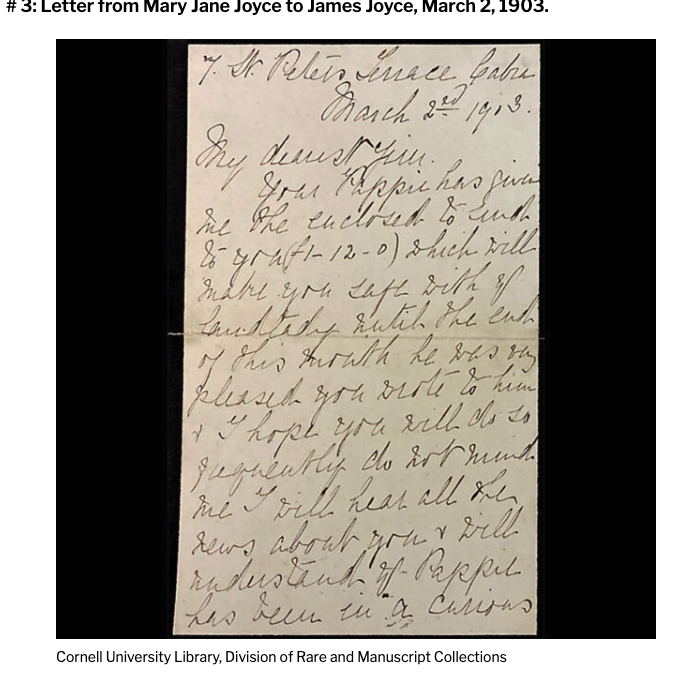 # 3: Letter from Mary Jane Joyce to James Joyce, March 2, 1903.
7. St. Peters Terrace Cabra
March 2nd 1903.
My dearest Jim.
Your Pappie has given
me the enclosed to send
to you (£1-12-0) which will
make you safe with yr
Landlady until the end
of this month he was very
pleased you wrote to him
& I hope you will do so
frequently do not mind
me I will hear all the
news about you & will
understand yr Pappie
has been in a curious
Cornell University Library, Division of Rare and Manuscript Collections